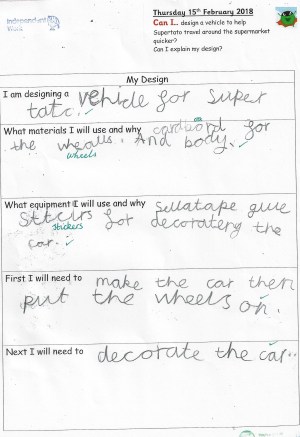 Independent Work
Thursday 15th February 2018
Can I.. design a vehicle to help
Supertato travel around the supermarket
quicker?
Can I explain my design?
My Design
I am designing a vehicle for Super
tato.
What materials I will use and why cardbord for
the whealls. And body.
wheels
What equipment I will use and why sulatape glue
Sticurs for decorateing the
stickers
car.
First I will need to make the car then
put the wheels on.
Next I will need to decorate the car..